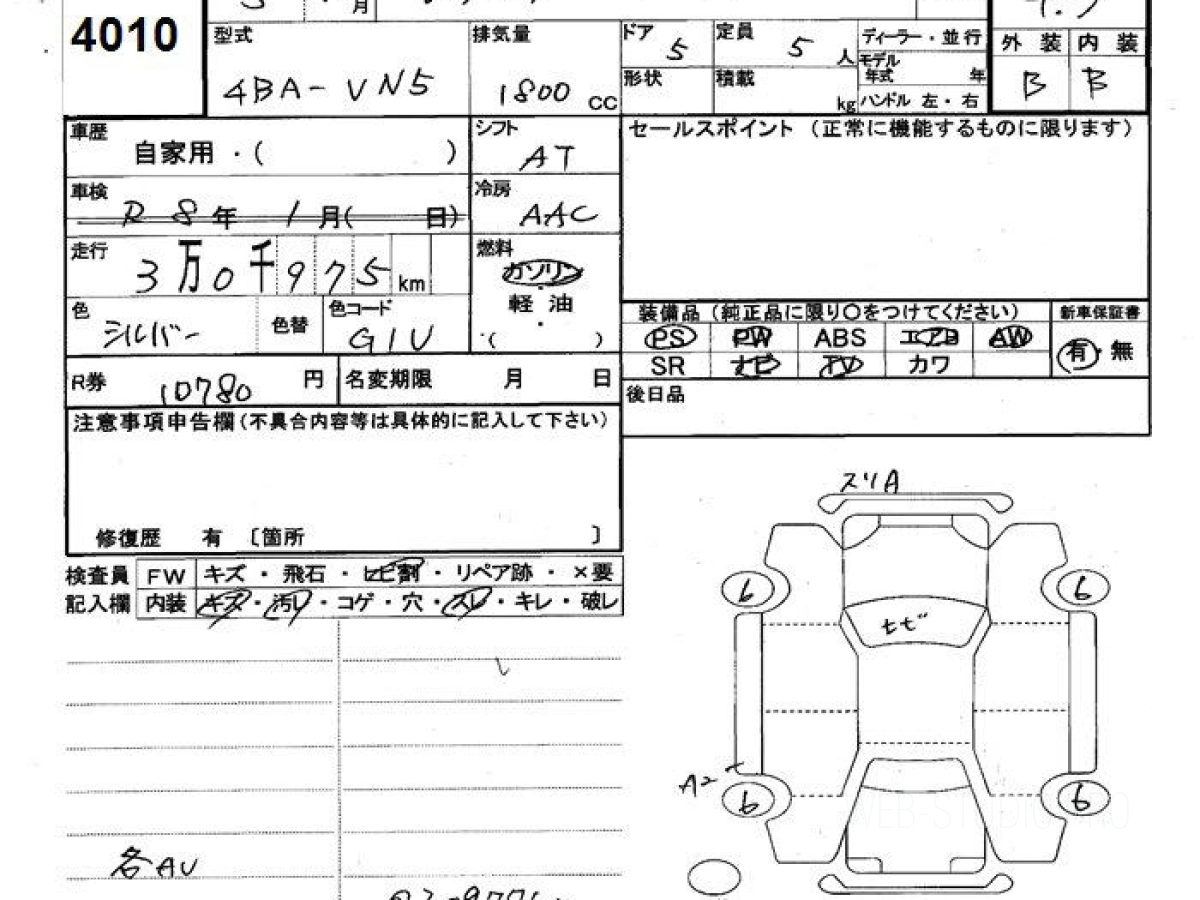 4010
月
型式
4BA-VN5
排気量
1800 CC
ドア
5
定員
5 人
ディーラー・並行
モデル年式 年
外装 内装
B B
形状
積載
kg
ハンドル 左・右
車歴
自家用・( )
シフト
AT
セールスポイント(正常に機能するものに限ります)
車検
R 8年 1月( 日)
冷房
AAC
走行
3万0千975km
燃料
ガソリン
軽油
・( )
色
シルバー
色替
色コード
G1U
装備品(純正品に限り〇をつけてください)
新車保証書
PS PW ABS エアB AW
有・無
SR ナビ TV カワ
R券
10780 円
名変期限 月 日
後日品
注意事項申告欄(不具合内容等は具体的に記入して下さい)
修復歴 有 〔箇所 〕
検査員記入欄
FW キズ・飛石・ヒビ割・リペア跡・×要
内装 キズ・汚レ・コゲ・穴・スレ・キレ・破レ
スリA
6 6
ヒビ
A2
6 6
各AU